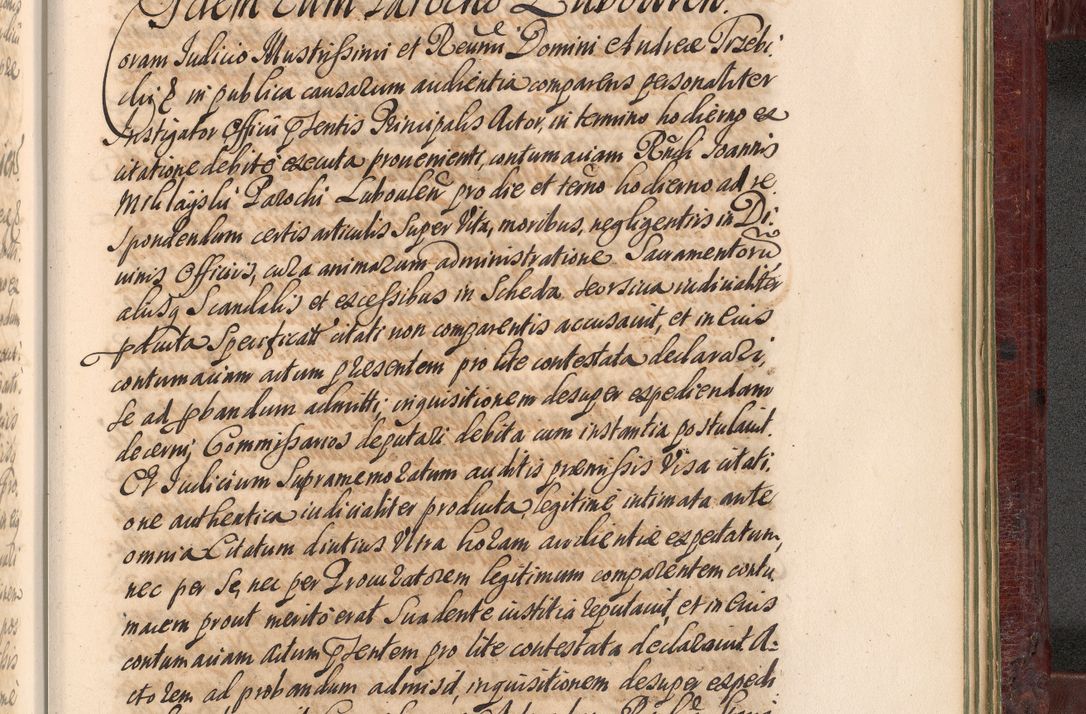 Idem cum Parocho Laboulien.
Coram Iudicio Illustrissimi et Reuemi Domini Andreæ Trzebi:
cki & in publica causarum audientia comparens personaliter
Instigator Officii Psentis Principalis Actor, in termino hodierno ex
citatione debite executa prouenienti, contumaciam Rndi Ioannis
Parochi Laboulen pro die et termo hodierno ad re
spondendum certis articulis super Vita, moribus, negligentiis in Di:
uinis Officiis, cura animarum administratione Sacramentorũ
aliisq Scandalis et excessibus in Scheda seorsiua iudicialiter
pducta Specificatt citati non comparentis accusauit, et in eius
contumaciam actum præsentem pro lite contestata declarari,
se ad pbandum admitti, inquisitionem desuper expediendam
decerni, Commissarios deputari debita cum instantia postulauit.
Et Iudicium Supramemoratum auditis præmissis Visa citati:
one authentica iudicialiter producta, legitime intimata ante
omnia Citatum diutius Vltra horam audientiæ expectatum,
nec per se, nec per Procuratorem legitimum comparentem contu
macem prout merito erat Suadente iustitia reputauit, et in eius
contumaciam actum Psentem pro lite contestata declarauit A:
ctorem ad probandum admisit, inquisitionem desuper expedi